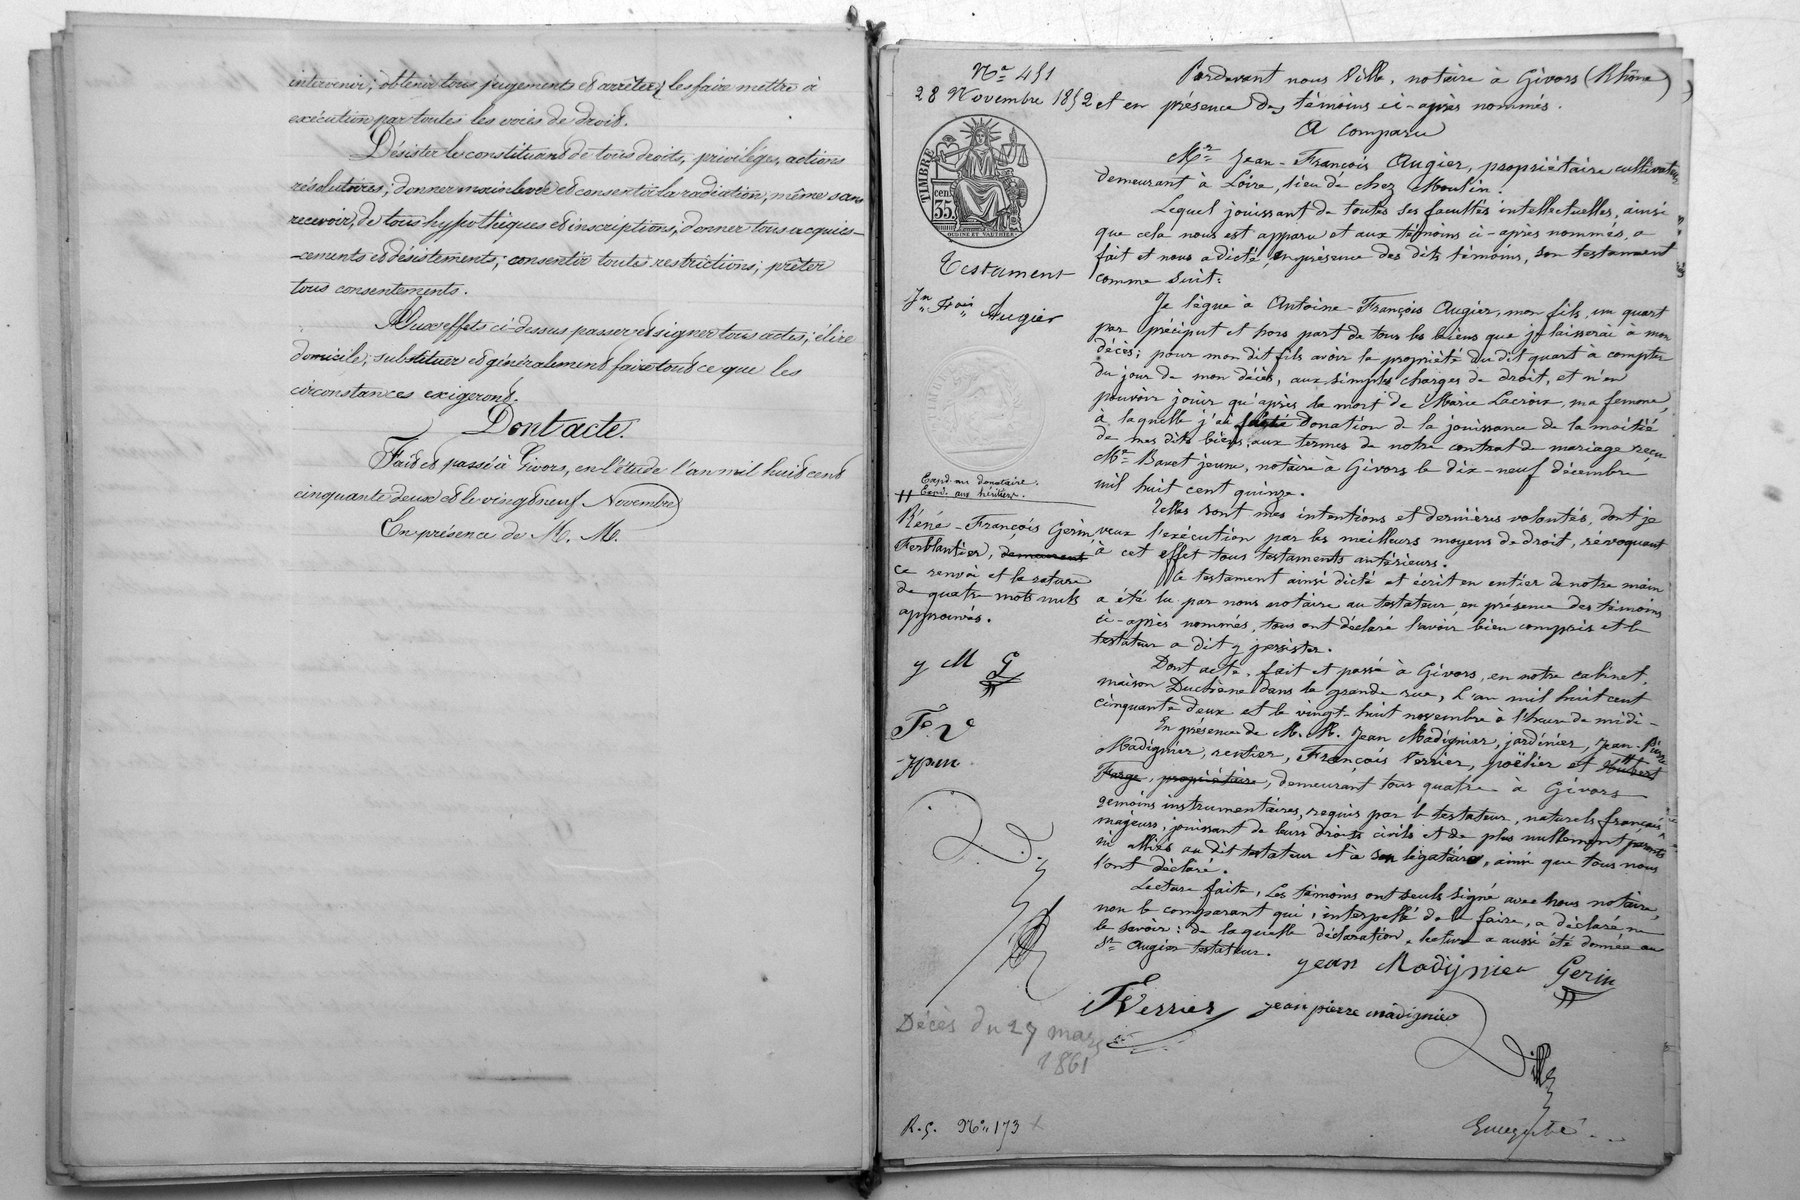 intervenir; obtenir tous jugements et arrêtés; les faire mettre à
exécution par toutes les voies de droit.
Désister le constituant de tous droits, privilèges, actions
résolutoires; donner main levée et consentir la radiation, même sans
recevoir, de tous hypothèques et inscriptions; donner tous acquies-
-cements et désistements; consentir toutes restrictions; prêter
tous consentements.
Aux effets ci-dessus passer et signer tous actes; élire
domicile; substituer et généralement faire tout ce que les
circonstances exigeront.
Dont acte.
Fait et passé à Givors, en l'étude l'an mil huit cent
cinquante deux et le vingt neuf Novembre
En présence de M. M.
No 451
28 Novembre 1852
TIMBRE
35 cen
OUDINÉ ET VAUTHIER
Testament
Jn Fois Augier
Expd. au donataire.
Expd. aux héritiers.
Réné-François Gerin,
Ferblantier, demeurant
ce renvoi et la rature
de quatre mots nuls
approuvés.
y M G
Fe V
jpm
Décès du 27 mars
1861
R. G. No 173
Pardevant nous Ville, notaire à Givors (Rhône)
et en présence des témoins ci-après nommés.
A comparu
Mr Jean-François Augier, propriétaire cultivateur
demeurant à Loire, lieu de chez Moulin.
Lequel jouissant de toutes ses facultés intellectuelles, ainsi
que cela nous est apparu et aux témoins ci-après nommés, a
fait et nous a dicté, en présence des dits témoins, son testament
comme suit:
Je lègue à Antoine-François Augier, mon fils, un quart
par préciput et hors part de tous les biens que je laisserai à mon
décès; pour mon dit fils avoir la propriété du dit quart à compter
du jour de mon décès, aux simples charges de droit, et n'en
pouvoir jouir qu'après la mort de Marie Lacroix, ma femme,
à laquelle j'ai fait donation de la jouissance de la moitié
de mes dits biens, aux termes de notre contrat de mariage reçu
Me Bavet jeune, notaire à Givors le dix-neuf décembre
mil huit cent quinze.
Telles sont mes intentions et dernières volontés, dont je
veux l'exécution par les meilleurs moyens de droit, révoquant
à cet effet tous testaments antérieurs.
Ce testament ainsi dicté et écrit en entier de notre main
a été lu par nous notaire au testateur, en présence des témoins
ci-après nommés, tous ont déclaré l'avoir bien compris et le
testateur a dit y persister.
Dont acte, fait et passé à Givors, en notre cabinet,
maison Duchêne dans la grande rue, l'an mil huit cent
cinquante deux et le vingt-huit novembre à l'heure de midi-
En présence de M. M. Jean Madignier, jardinier, Jean-Pierre
Madignier, rentier, François Verrier, poêlier et Hubert
Farge, propriétaire, demeurant tous quatre à Givors
témoins instrumentaires, requis par le testateur, naturels français,
majeurs, jouissant de leurs droits civils et de plus nullement parents
ni alliés au dit testateur et à son légataire, ainsi que tous nous
l'ont déclaré.
Lecture faite, Les témoins ont seuls signé avec nous notaire,
non le comparant qui, interpellé de le faire, a déclaré ne
le savoir: de laquelle déclaration, lecture a aussi été donnée au
Sr Augier testateur.
jean Madignier Gerin
F Verrier jean pierre madignier
Ville